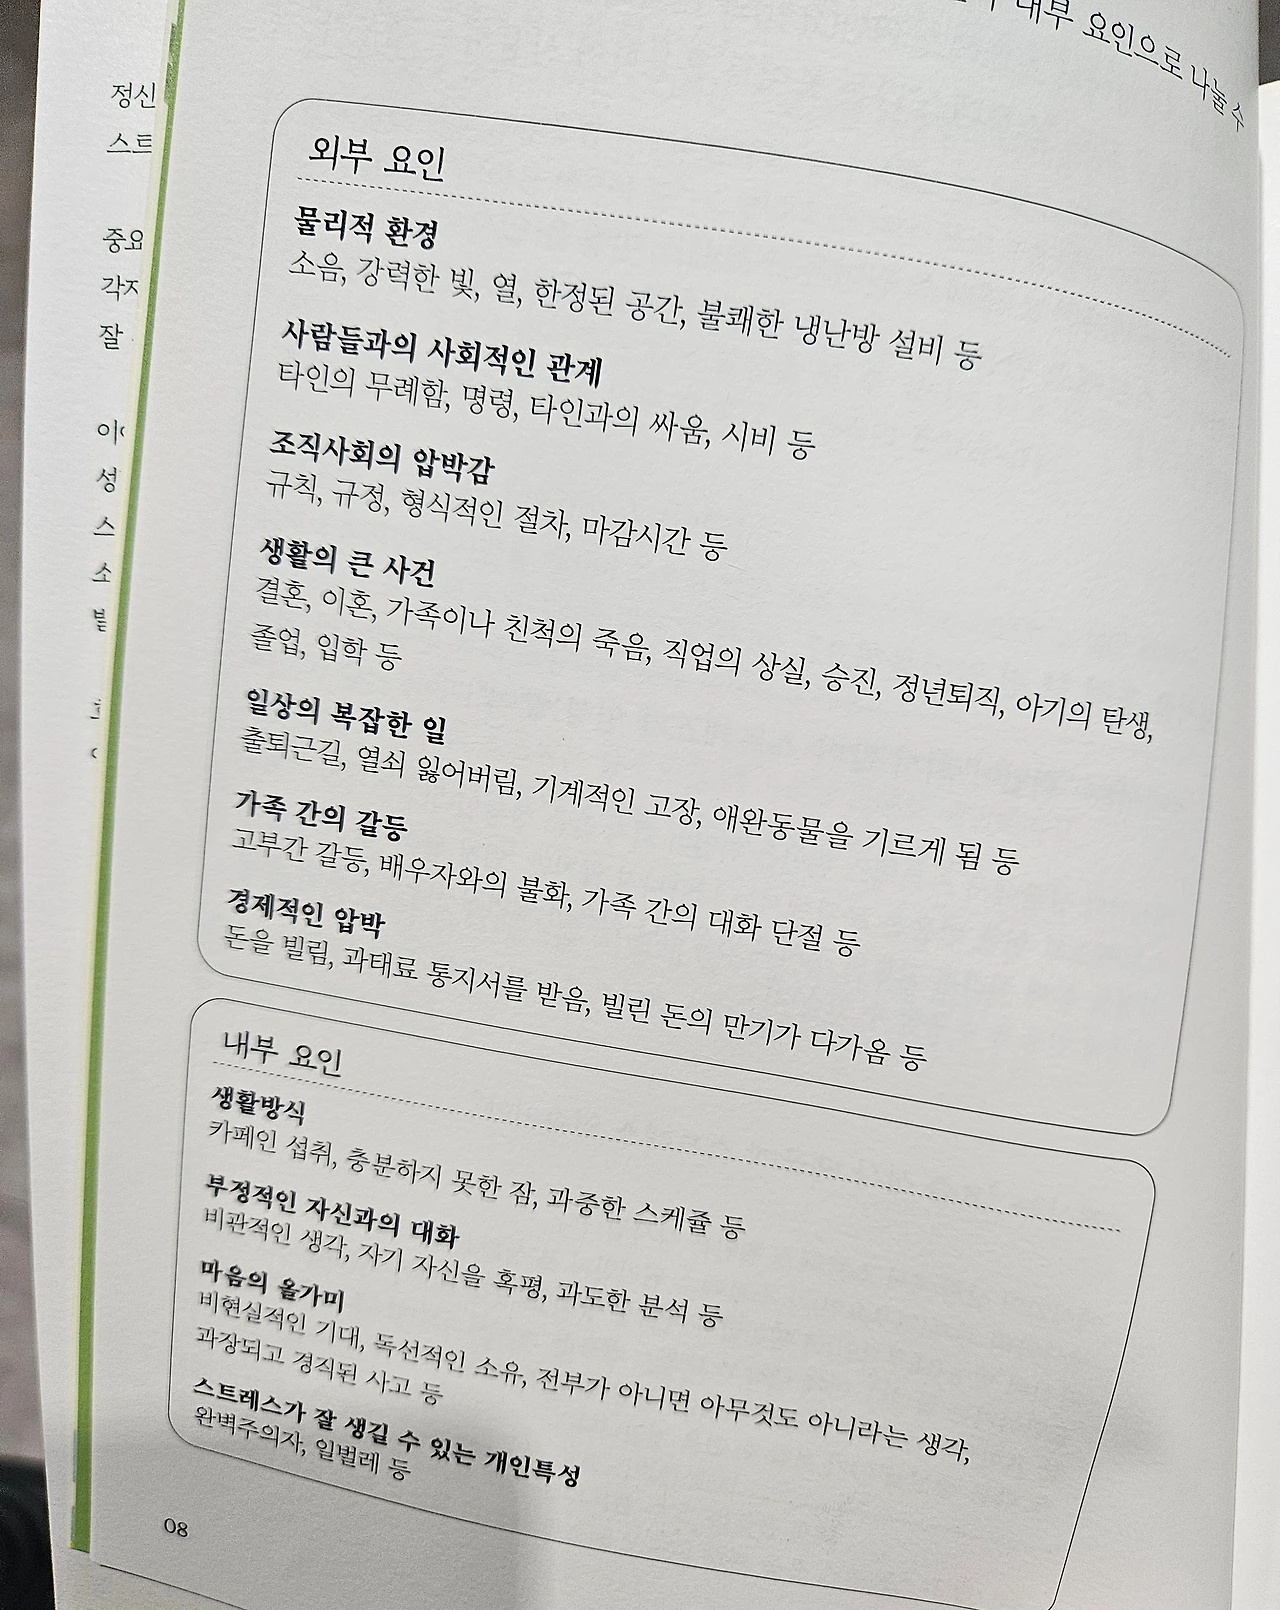 내부 요인으로 나눌 수
정신
스트
중요
각자
잘
성
스
소
외부 요인
물리적 환경
소음, 강력한 빛, 열, 한정된 공간, 불쾌한 냉난방 설비 등
사람들과의 사회적인 관계
타인의 무례함, 명령, 타인과의 싸움, 시비 등
조직사회의 압박감
규칙, 규정, 형식적인 절차, 마감시간 등
생활의 큰 사건
결혼, 이혼, 가족이나 친척의 죽음, 직업의 상실, 승진, 정년퇴직, 아기의 탄생,
졸업, 입학 등
일상의 복잡한 일
출퇴근길, 열쇠 잃어버림, 기계적인 고장, 애완동물을 기르게 됨 등
가족 간의 갈등
고부간 갈등, 배우자와의 불화, 가족 간의 대화 단절 등
경제적인 압박
돈을 빌림, 과태료 통지서를 받음, 빌린 돈의 만기가 다가옴 등
내부 요인
생활방식
카페인 섭취, 충분하지 못한 잠, 과중한 스케쥴 등
부정적인 자신과의 대화
비관적인 생각, 자기 자신을 혹평, 과도한 분석 등
마음의 올가미
비현실적인 기대, 독선적인 소유, 전부가 아니면 아무것도 아니라는 생각,
과장되고 경직된 사고 등
스트레스가 잘 생길 수 있는 개인특성
완벽주의자, 일벌레 등
08